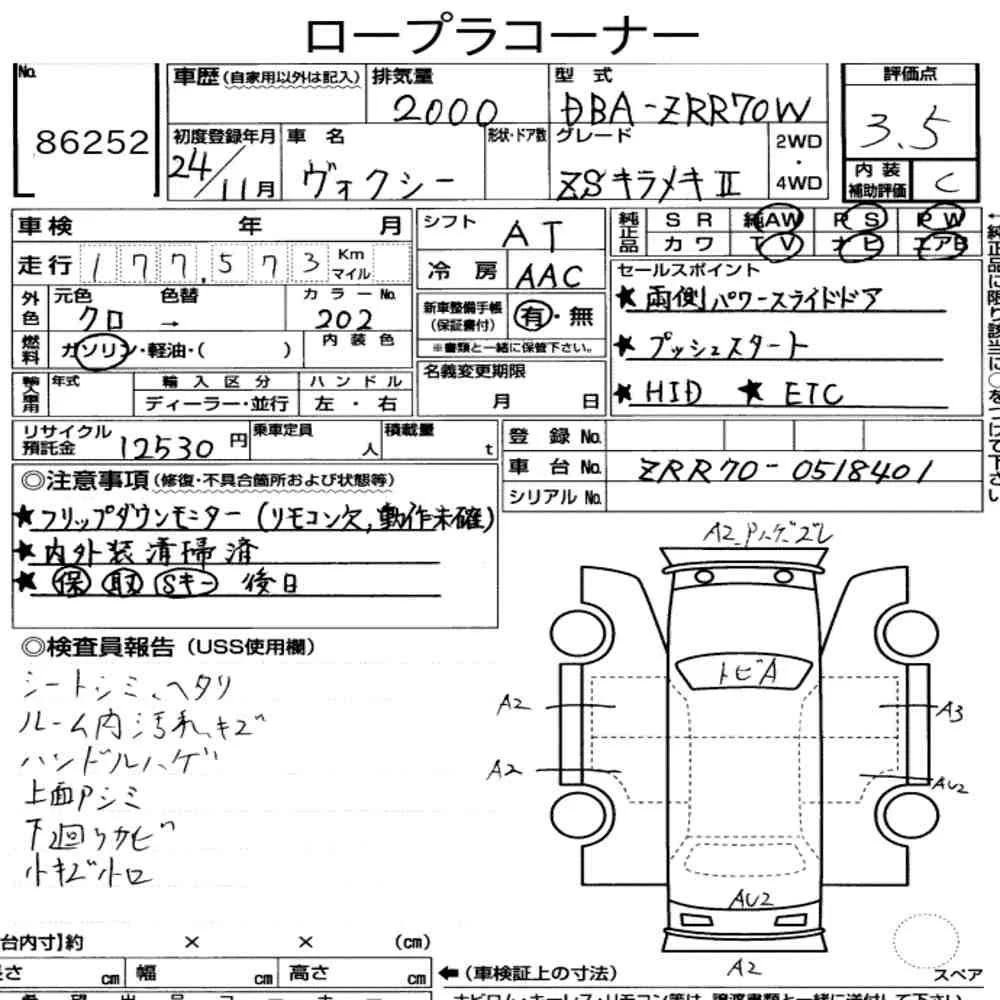 ロープラコーナー
No. 86252
車歴(自家用以外は記入) 排気量 2000 型式 DBA-ZRR70W 評価点 3.5
初度登録年月 24/11月 車名 ヴォクシー 形状・ドア数 グレード ZSキラメキⅡ 2WD・4WD 内装補助評価 C
車検 年 月 シフト AT 純正品 SR 純AW PS PW
走行 177,573 Km マイル 冷房 AAC カワ TV ナビ エアB
←純正品に限り該当に○をつけて下さい
外色 元色 クロ 色替 → カラーNo. 202
新車整備手帳(保証書付) 有・無
※書類と一緒に保管下さい。
燃料 ガソリン・軽油・( ) 内装色
セールスポイント
★両側パワースライドドア
★プッシュスタート
★HID ★ETC
輸入車用 年式 輸入区分 ハンドル
ディーラー・並行 左・右
名義変更期限 月 日
リサイクル預託金 12530円 乗車定員 人 積載量 t
登録No.
車台No. ZRR70-0518401
シリアルNo.
◎注意事項(修復・不具合箇所および状態等)
★フリップダウンモニター(リモコン欠,動作未確)
★内外装清掃済
★保 取 Sキー 後日
◎検査員報告(USS使用欄)
シートシミ、ヘタリ
ルーム内汚れ、キズ
ハンドルハゲ
上面Pシミ
下廻りサビ
小キズ小凹
A2 Pハゲズレ
トビA
A2
A3
A2
AU2
AU2
A2
スペア
台内寸]約 × × (cm)
長さ cm 幅 cm 高さ cm ←(車検証上の寸法)